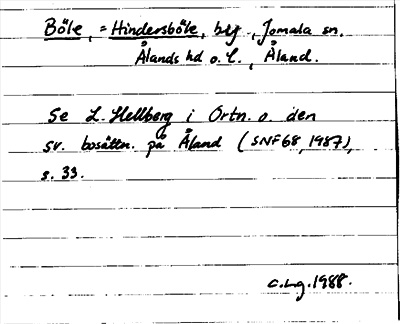 Böle, = Hindersböle, by, Jomala sn.
Ålands hd o. l., Åland.
Se L. Hellberg i Ortn. o. den
sv. bosättn. på Åland (SNF 68, 1987),
s. 33.
C.Lg. 1988.